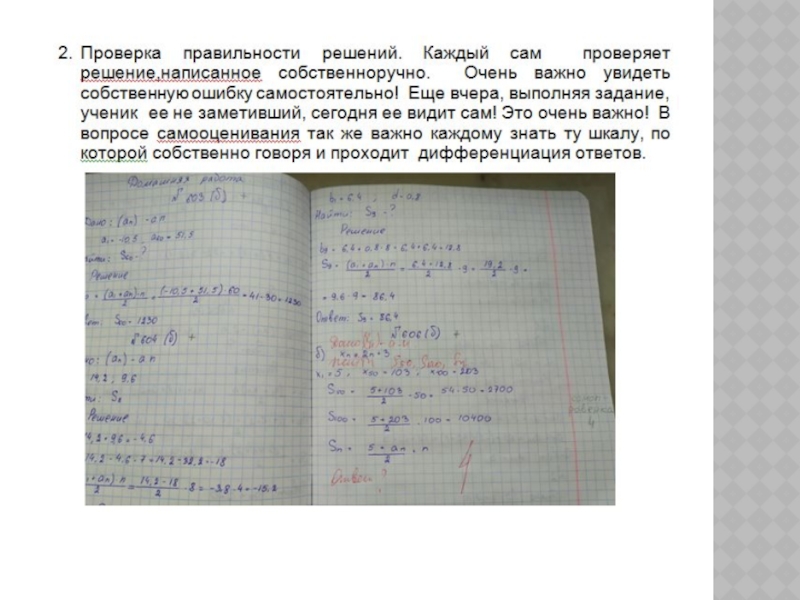 2. Проверка правильности решений. Каждый сам проверяет
решение,написанное собственноручно. Очень важно увидеть
собственную ошибку самостоятельно! Еще вчера, выполняя задание,
ученик ее не заметивший, сегодня ее видит сам! Это очень важно! В
вопросе самооценивания так же важно каждому знать ту шкалу, по
которой собственно говоря и проходит дифференциация ответов.
Домашняя работа
№ 603 (б) +
Дано: (an) - а.п
a₁ = -10,5, a₆₀ = 51,5
S₆₀ - ?
Решение
= (a₁+an)·n / 2 = (-10,5+51,5)·60 / 2 = 41·30 = 1230
S₆₀ = 1230
№ 604 (б) +
(an) - а.п
14,2 ; 9,6
S₈
Решение
14,2 + 9,6 = -4,6
14,2 - 4,6 · 7 = 14,2 - 32,2 = -18
= 14,2 - 18 / 2 · 8 = -3,8 · 4 = -15,2
b = 6,4 ; d = 0,8
Найти: S₉ - ?
Решение
b₉ = 6,4 + 0,8 · 8 = 6,4 + 6,4 = 12,8
S₉ = (a₁+an)·n / 2 = 6,4 + 12,8 / 2 · 9 = 19,2 / 2 · 9 =
= 9,6 · 9 = 86,4
Ответ: S₉ = 86,4
№ 606 (б) +
б) xn = 2n + 3
x₁ = 5 , x₅₀ = 103 , x₁₀₀ = 203
S₅₀ = 5+103 / 2 · 50 = 54·50 = 2700
S₁₀₀ = 5+203 / 2 · 100 = 10400
Sn = 5+an / 2 · n
Ответ ?
4
4